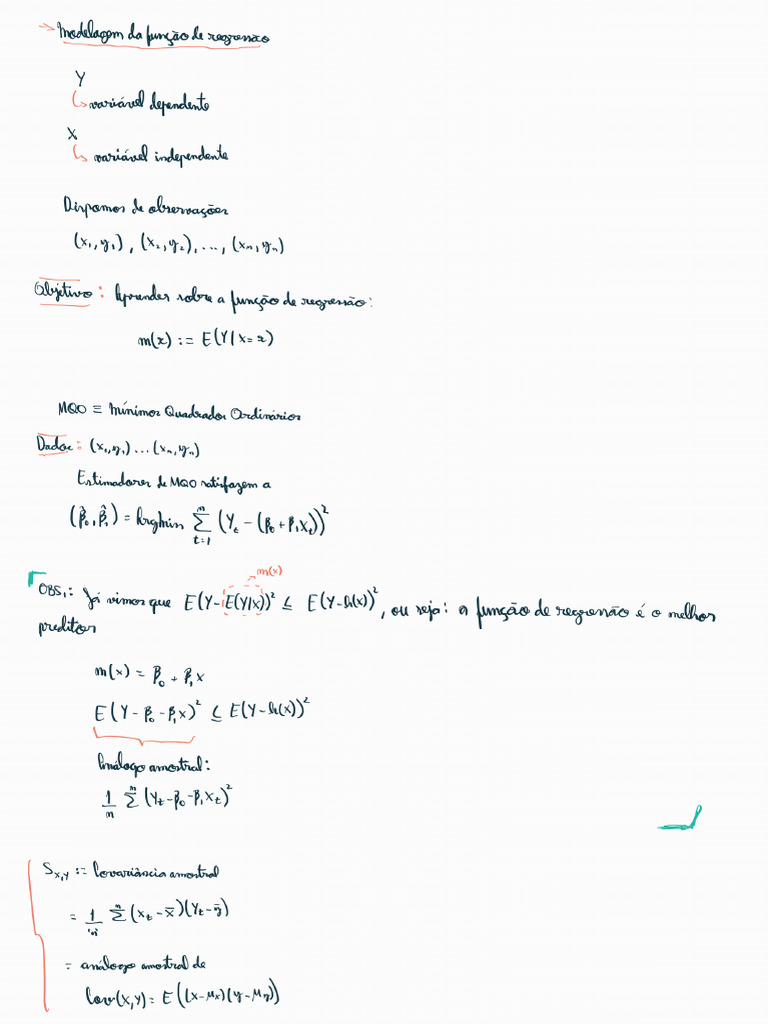 → Modelagem da função de regressão
Y
↳ variável dependente
X
↳ variável independente
Dispomos de observações
(x₁,y₁), (x₂,y₂), ..., (xₙ,yₙ)
Objetivo: Aprender sobre a função de regressão:
m(x) := E(Y|X=x)
MQO ≡ Mínimos Quadrados Ordinários
Dados: (x₁,y₁)...(xₙ,yₙ)
Estimadores de MQO satisfazem a
(β̂₀,β̂₁) = Argmin Σₜ₌₁ⁿ (Yₜ - (β₀+β₁Xₜ))²
→ m(x)
OBS₁: Já vimos que E(Y-E(Y|X))² ≤ E(Y-h(X))², ou seja: a função de regressão é o melhor
preditor
m(x) = β₀ + β₁x
E(Y-β₀-β₁X)² ≤ E(Y-h(X))²
Análogo amostral:
1/n Σⁿ (Yₜ-β₀-β₁Xₜ)²
Sₓ,ᵧ := Covariância amostral
= 1/n Σⁿ (xₜ-x̄)(Yₜ-ȳ)
= análogo amostral de
Cov(X,Y) = E((X-μₓ)(y-μᵧ))